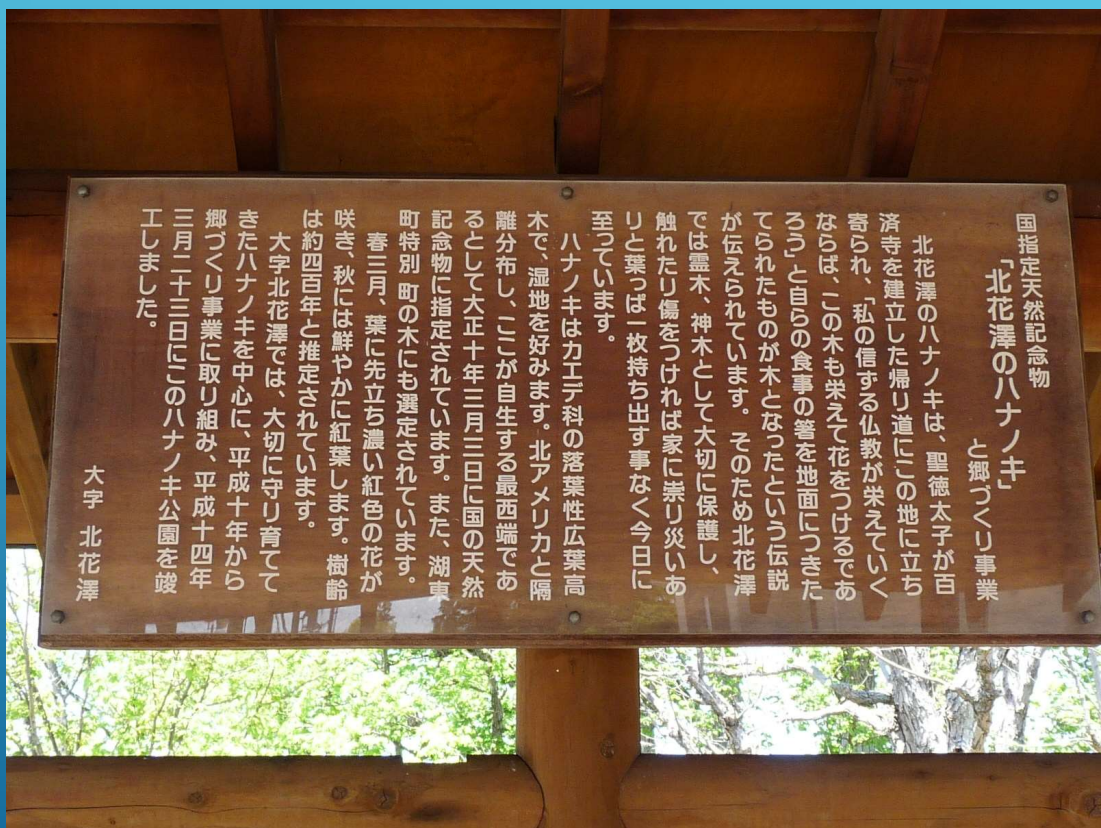 国指定天然記念物
「北花澤のハナノキ」
と郷づくり事業
北花澤のハナノキは、聖徳太子が百
済寺を建立した帰り道にこの地に立ち
寄られ、「私の信ずる仏教が栄えていく
ならば、この木も栄えて花をつけるであ
ろう」と自らの食事の箸を地面につきた
てられたものが木となったという伝説
が伝えられています。そのため北花澤
では霊木、神木として大切に保護し、
触れたり傷をつければ家に祟り災いあ
りと葉っぱ一枚持ち出す事なく今日に
至っています。
ハナノキはカエデ科の落葉性広葉高
木で、湿地を好みます。北アメリカと隔
離分布し、ここが自生する最西端であ
るとして大正十年三月三日に国の天然
記念物に指定されています。また、湖東
町特別 町の木にも選定されています。
春三月、葉に先立ち濃い紅色の花が
咲き、秋には鮮やかに紅葉します。樹齢
は約四百年と推定されています。
大字北花澤では、大切に守り育てて
きたハナノキを中心に、平成十年から
郷づくり事業に取り組み、平成十四年
三月二十三日にこのハナノキ公園を竣
工しました。
大字 北花澤